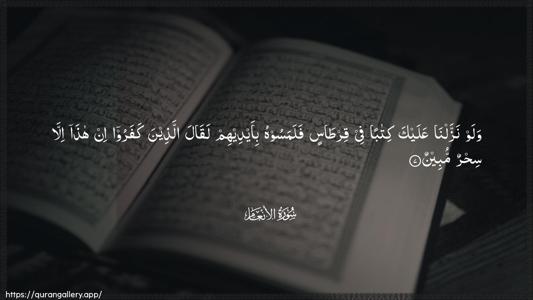 وَلَوْ نَزَّلْنَا عَلَيْكَ كِتٰبًا فِيْ قِرْطَاسٍ فَلَمَسُوْهُ بِأَيْدِيْهِمْ لَقَالَ الَّذِيْنَ كَفَرُوْٓا اِنْ هٰذَآ اِلَّا
سِحْرٌ مُّبِيْنٌ
سُورَةُ الأَنْعَامِ
https://qurangallery.app/